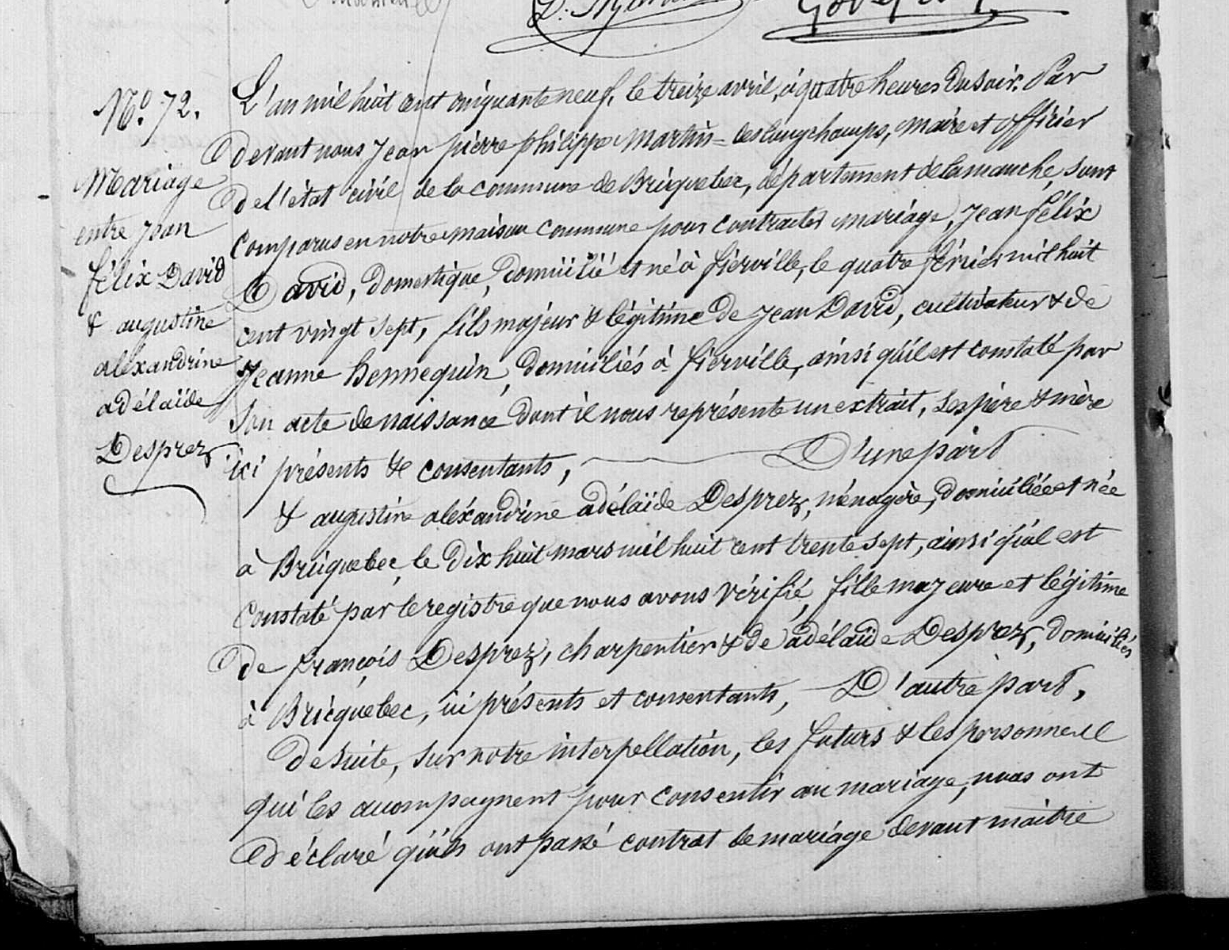 N.° 72.
Mariage
entre Jean
félix David
& augustine
alexandrine
adélaïde
Desprez
L'an mil huit cent cinquante neuf, le treize avril, à quatre heures du soir. Par
devant nous Jean pierre philippe Martin-deslongchamps, Maire et officier
de l'état civil de la commune de Bricquebec, département de la manche, sont
comparus en notre maison commune pour contracter mariage, Jean félix
David, domestique, domicilié et né à fierville, le quatre février mil huit
cent vingt sept, fils majeur & légitime de Jean David, cultivateur & de
Jeanne hennequin, domiciliés à fierville, ainsi qu'il est constaté par
son acte de naissance dont il nous représente un extrait, ses père & mère
ici présents & consentants, D'une part
& augustine aléxandrine adélaïde Desprez, ménagère, domiciliée et née
à Bricquebec, le dix huit mars mil huit cent trente sept, ainsi qu'il est
constaté par le registre que nous avons vérifié, fille majeure et légitime
de françois Desprez, charpentier & de adélaïde Desprez, domiciliés
à Bricquebec, ici présents et consentants, D'autre part,
De suite, sur notre interpellation, les futurs & les personnes
qui les accompagnent pour consentir au mariage, nous ont
déclaré qu'ils ont passé contrat de mariage devant maître